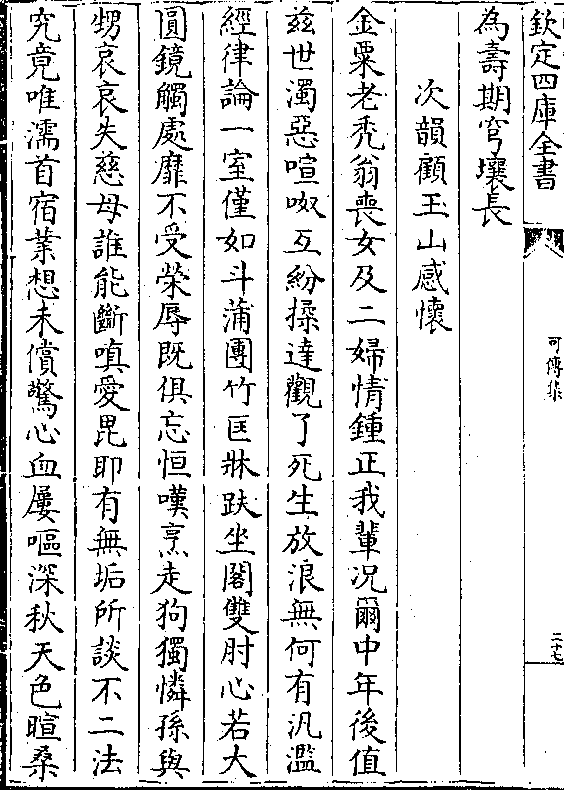 欽定四庫全書
可傳集
二十七
為壽期穹壤長
次韻顧玉山感懷
金粟老禿翁喪女及二婦情鍾正我輩况爾中年後值
兹世濁惡喧呶互紛揉達觀了死生放浪無何有汎濫
經律論一室僅如斗蒲團竹匡牀趺坐閣雙肘心若大
圓鏡觸處靡不受榮辱既俱忘恒嘆烹走狗獨憐孫與
甥哀哀失慈母誰能斷嗔愛毘耶有無垢所談不二法
究竟唯濡首宿業想未償驚心血屢嘔深秋天色暄桑